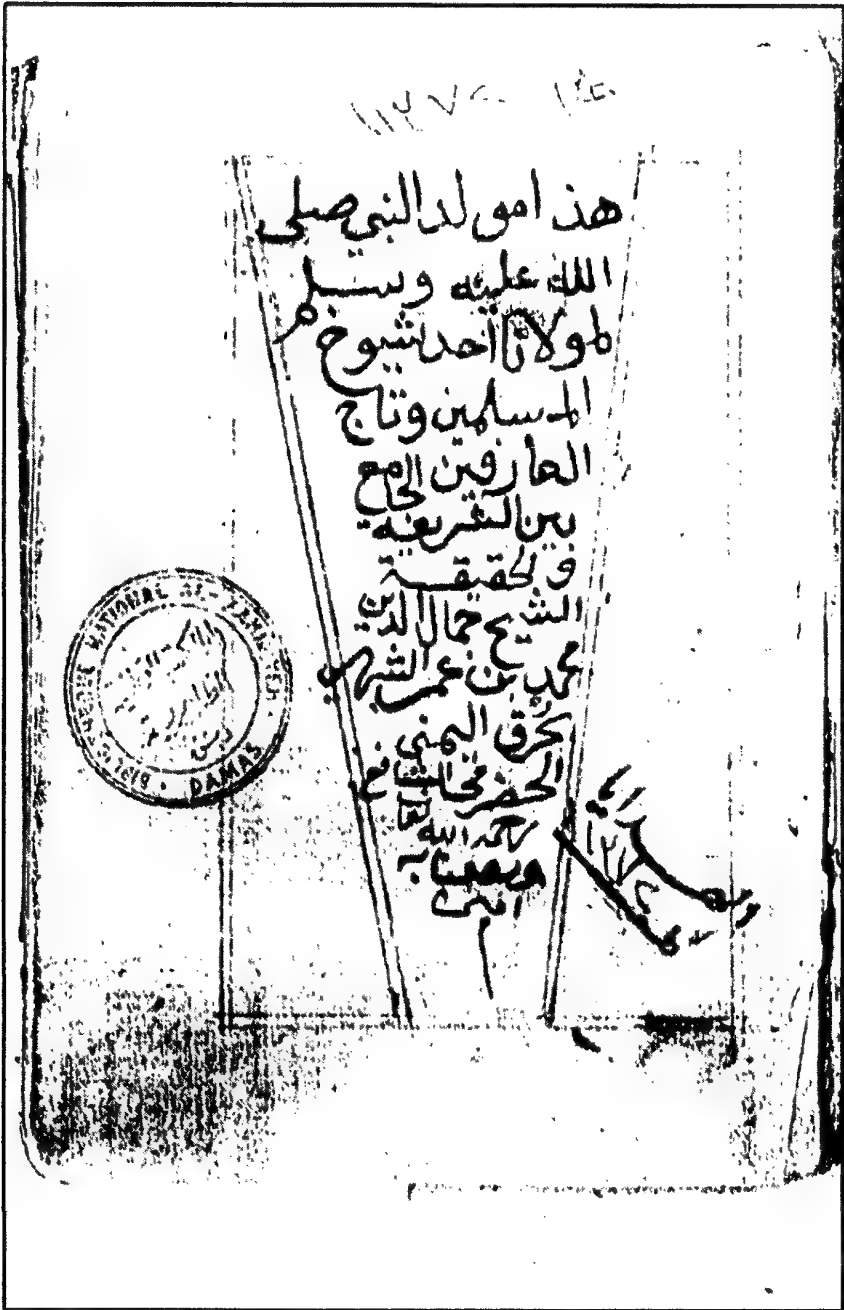 ١١٢٧٠
هذا مولد النبي صلى
الله عليه وسلم
لمولانا أحد شيوخ
المسلمين وتاج
العارفين الجامع
بين الشريعة
والحقيقة
الشيخ جمال الدين
محمد بن عمر الشهير
بحرق اليمني
الحضرمي الشافعي
رحمه الله تعالى
ونفعنا به
امين
BIBLIOTHEQUE NATIONAL AL-ZAHIRIYEH
الظاهرية
DAMAS